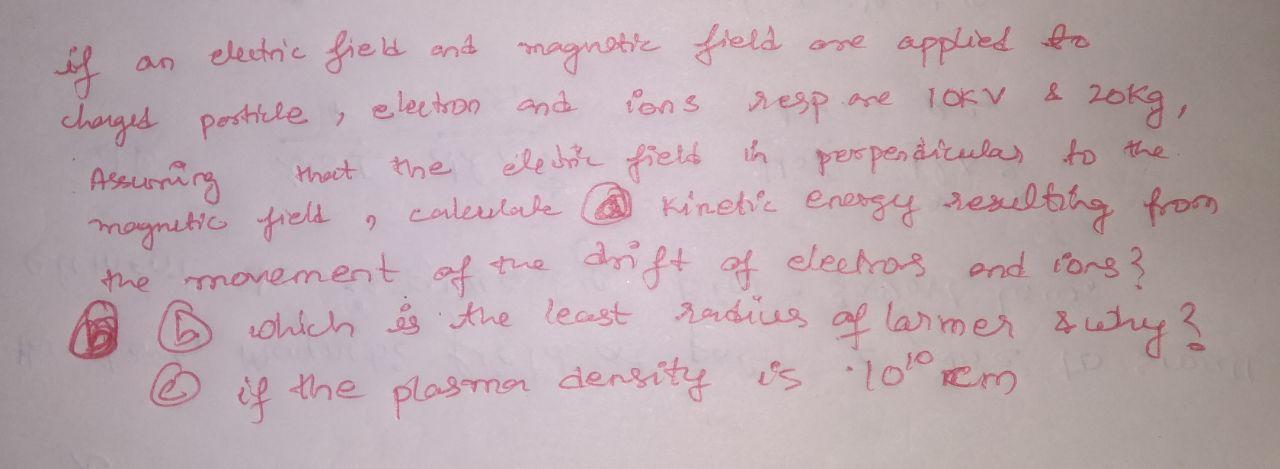 if an electric field and magnetic field are applied to
charged particle, electron and ions resp are 10KV & 20Kg,
Assuming that the electric field in perpendicular to the
magnetic field, calculate (a) Kinetic energy resulting from
the movement of the drift of electros and ions?
(b) which is the least radius of larmer & why?
(c) if the plasma density is 10¹⁰ cm